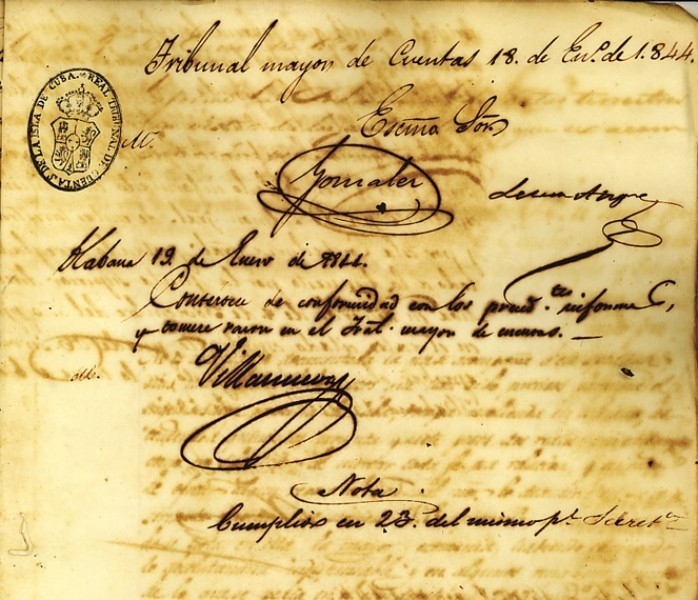 Tribunal mayor de Cuentas 18. de En.º de 1.844.
REAL TRIBUNAL DE CUENTAS DE LA ISLA DE CUBA.
Escmo Sor
Gonzalez
Habana 19. de Enero de 1844.
de conformidad con los preced.tes informes,
y tomese razon en el Tral. mayor de cuentas.
Villanueva
Nota
Cumplido en 23. del mismo p.r Secret.ria